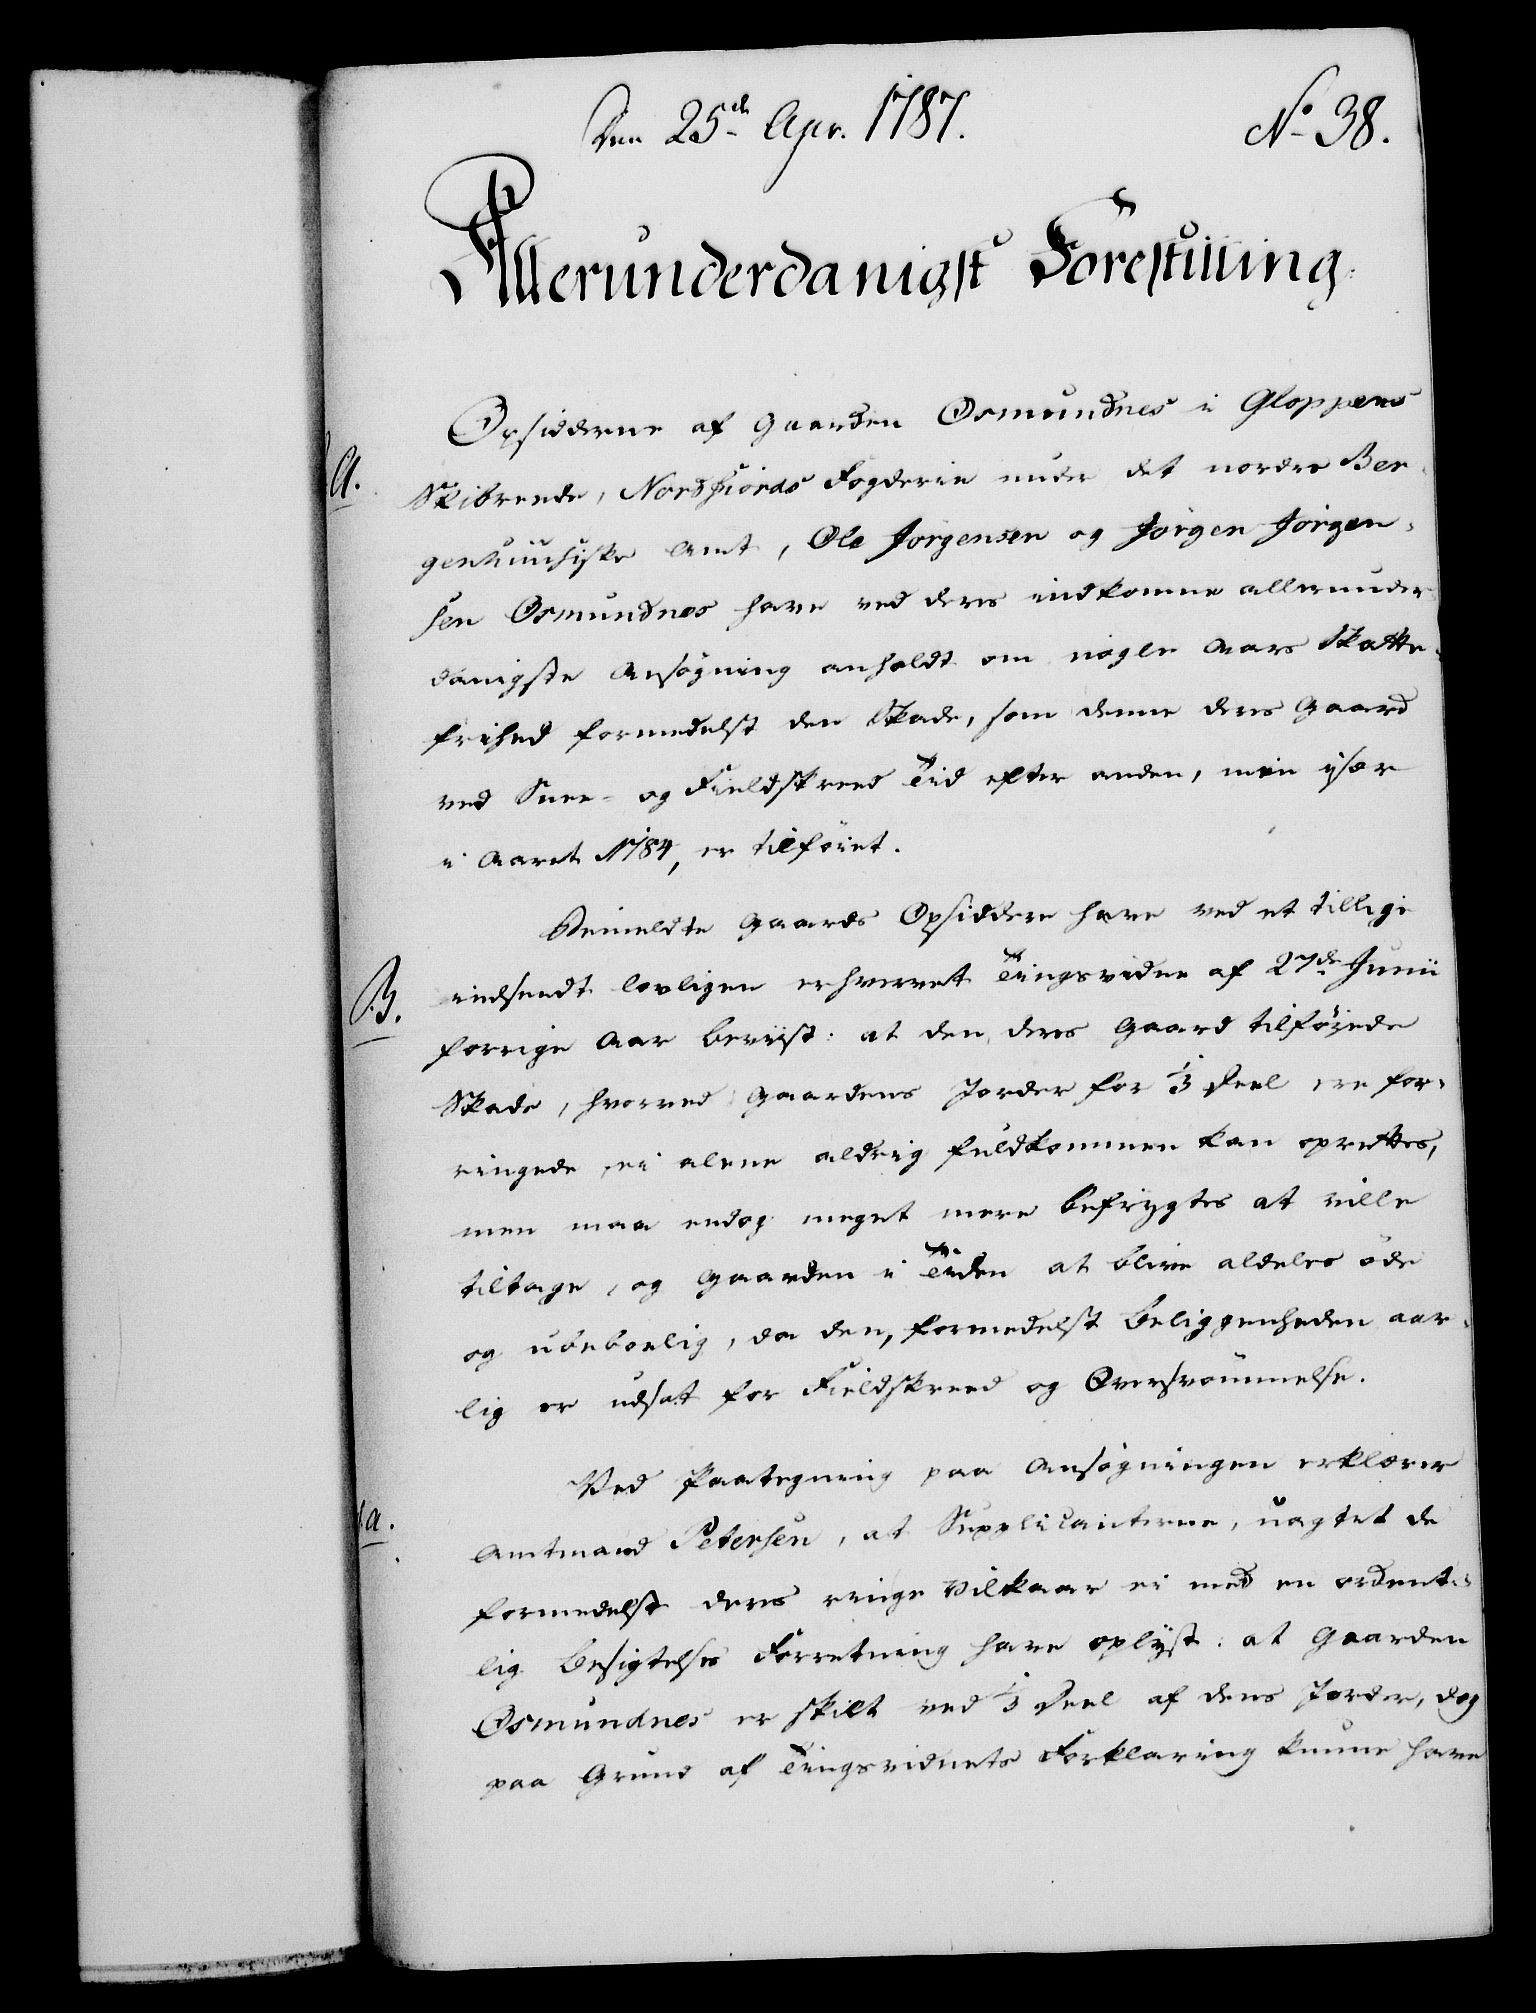 Den 25de Apr. 1787.
No 38.
Allerunderdanigst Forestilling.
Opsidderne af Gaarden Osmundnes i Gloppens
A.
Skibrende, Nordfiords Fogderie under det nordre Ber-
genhuusiske Amt, Ole Jørgensen og Jørgen Jørgen-
sen Osmundnes have ved deres indkomne allerunder-
danigste Ansøgning anholdt om nogle Aars Skatte-
frihed formedelst den Skade, som denne deres Gaard
ved Snee- og Fieldskreed Tid efter anden, men især
i Aaret 1784, er tilføiet.
Bemeldte Gaards Opsiddere have ved et tillige
B.
indsendt lovligen erhvervet Tingsvidne af 27de Junii
forrige Aar beviist: at den deres Gaard tilføiede
Skade, hvorved Gaardens Jorder for 1/3 Deel ere for-
ringede, ei alene aldrig fuldkommen kan oprettes,
men maa endog meget mere befrygtes at ville
tiltage, og Gaarden i Tiden at blive aldeles øde
og ubeboelig, da den, formedelst Beliggenheden aar-
lig er udsat for Fieldskreed og Oversvømmelse.
Ved Paategning paa Ansøgningen erklærer
a.
Amtmand Petersen, at Supplicanterne, uagtet de
formedelst deres ringe Vilkaar ei med en ordent-
lig Besigtelses Forretning have oplyst: at Gaarden
Osmundnes er skilt ved 1/3 Deel af dens Jorder, dog
paa Grund af Tingsvidnets Forklaring kunne have